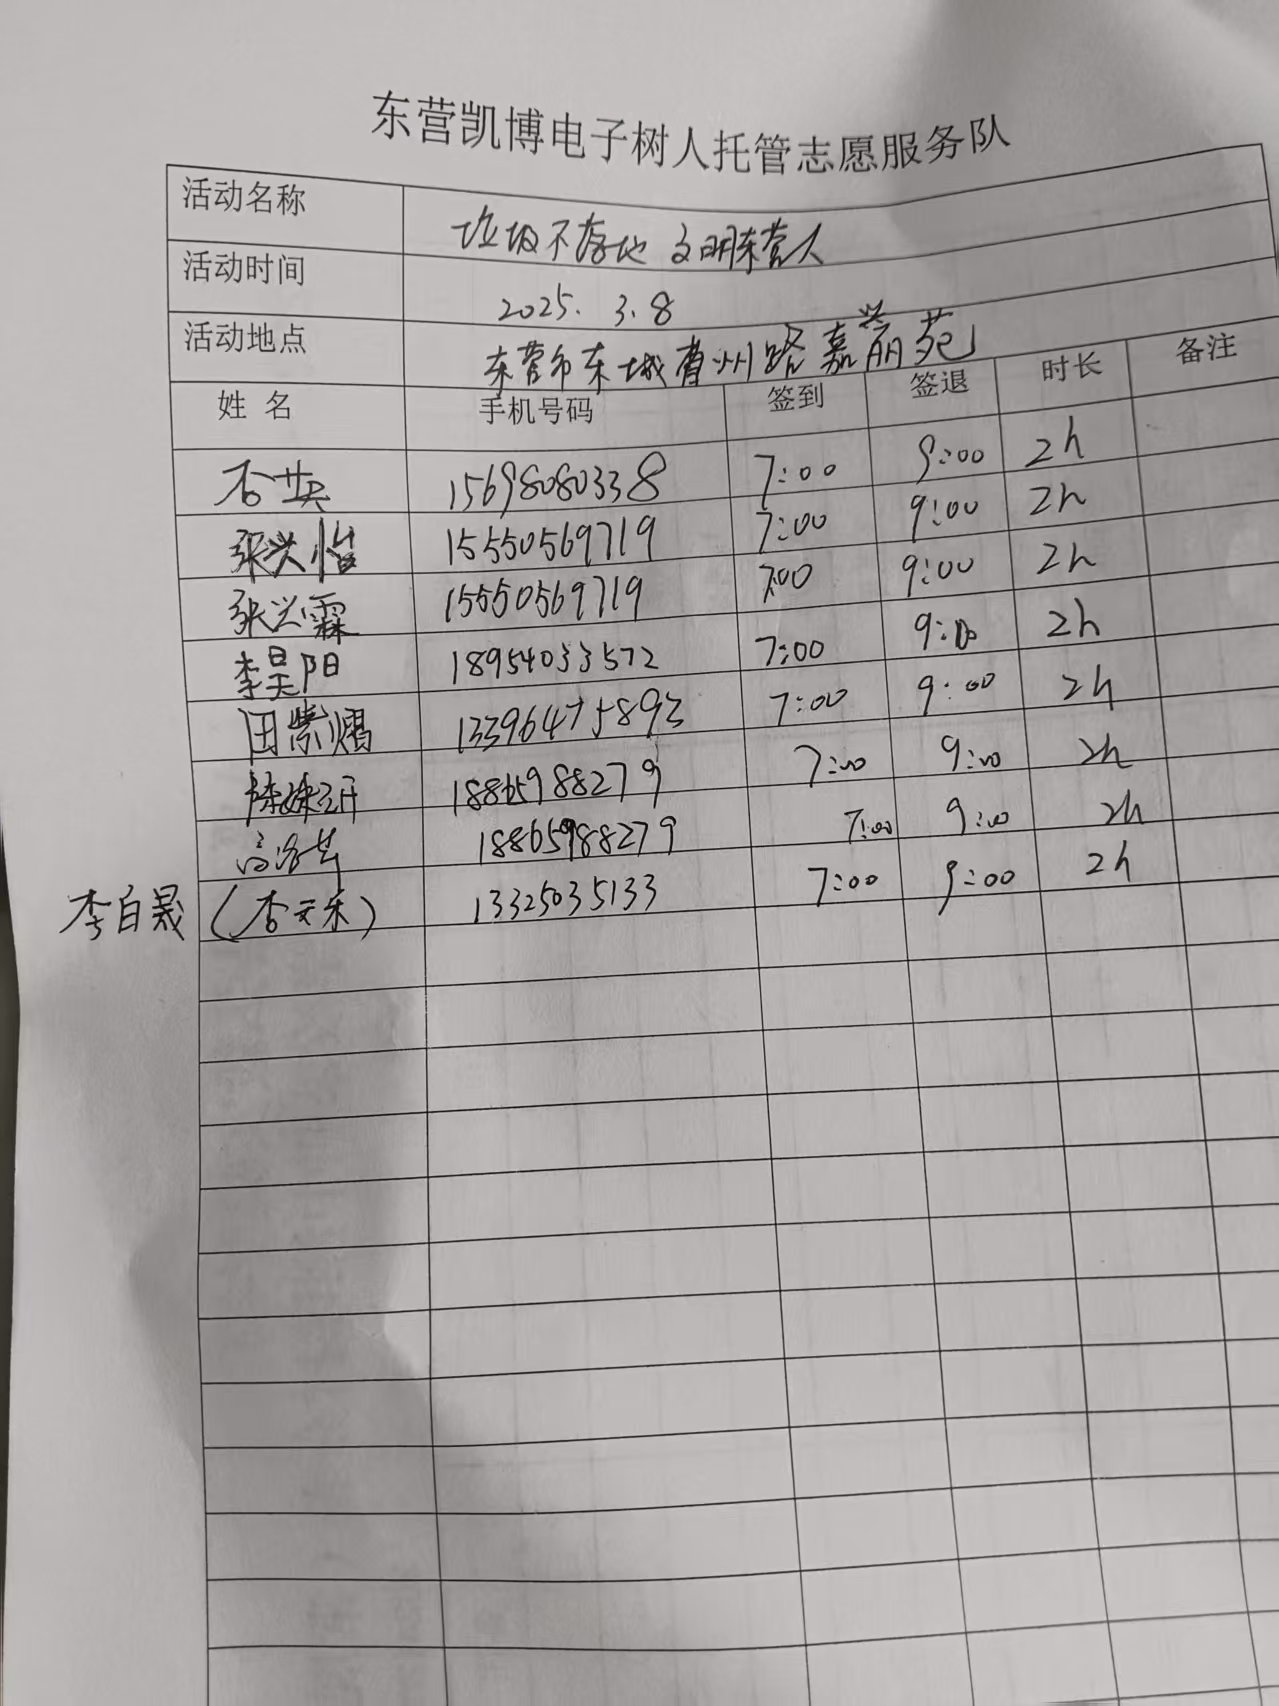 东营凯博电子树人托管志愿服务队
活动名称 垃圾不落地 文明东营人
活动时间 2025. 3.8
活动地点 东营市东城青州路嘉兴丽苑
姓 名 手机号码 签到 签退 时长 备注
杏英 15698080338 7:00 9:00 2h
张兴怡 15550569719 7:00 9:00 2h
张兴霖 15550569719 7:00 9:00 2h
李昊阳 18954033572 7:00 9:00 2h
田紫熠 13396475893 7:00 9:00 2h
18865988279 7:00 9:00 2h
18865988279 7:00 9:00 2h
李白晟 (杏云乐) 13325035133 7:00 9:00 2h